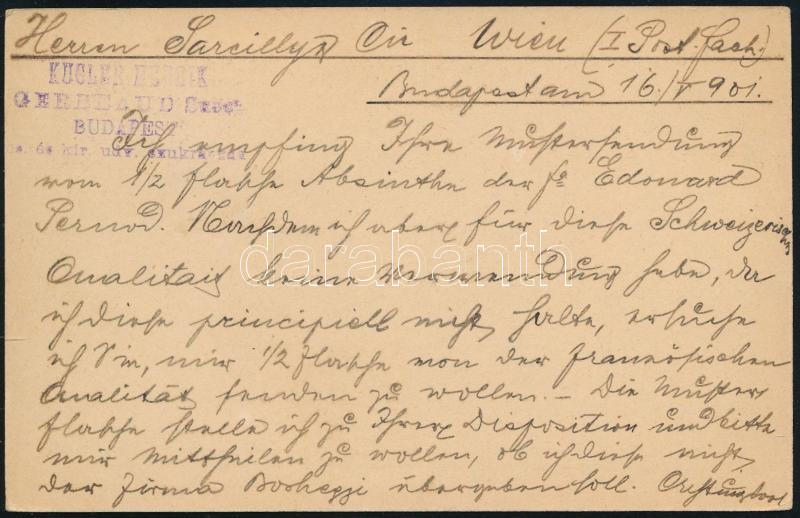 Herrn Sarcillyx Cie Wien (I Post-fach.)
KUGLER HENRIK
GERBEAUD Succr
BUDAPEST
cs. és kir. udv. czukrász
Budapest am 16./V 901.
Ich empfing Ihre Mustersendung
vom 1/2 Flasche Absinthe der Fa Edouard
Pernod. Nachdem ich aber für diese Schweizerische
Qualität keine Verwendung habe, da
ich diese principiell nicht halte, ersuche
ich Sie, mir 1/2 Flasche von der französischen
Qualität senden zu wollen. – Die Muster
flasche stelle ich zu Ihrer Disposition und bitte
mir mittheilen zu wollen, ob ich diese nicht
der Firma übergeben soll. Achtungsvoll
darabanth